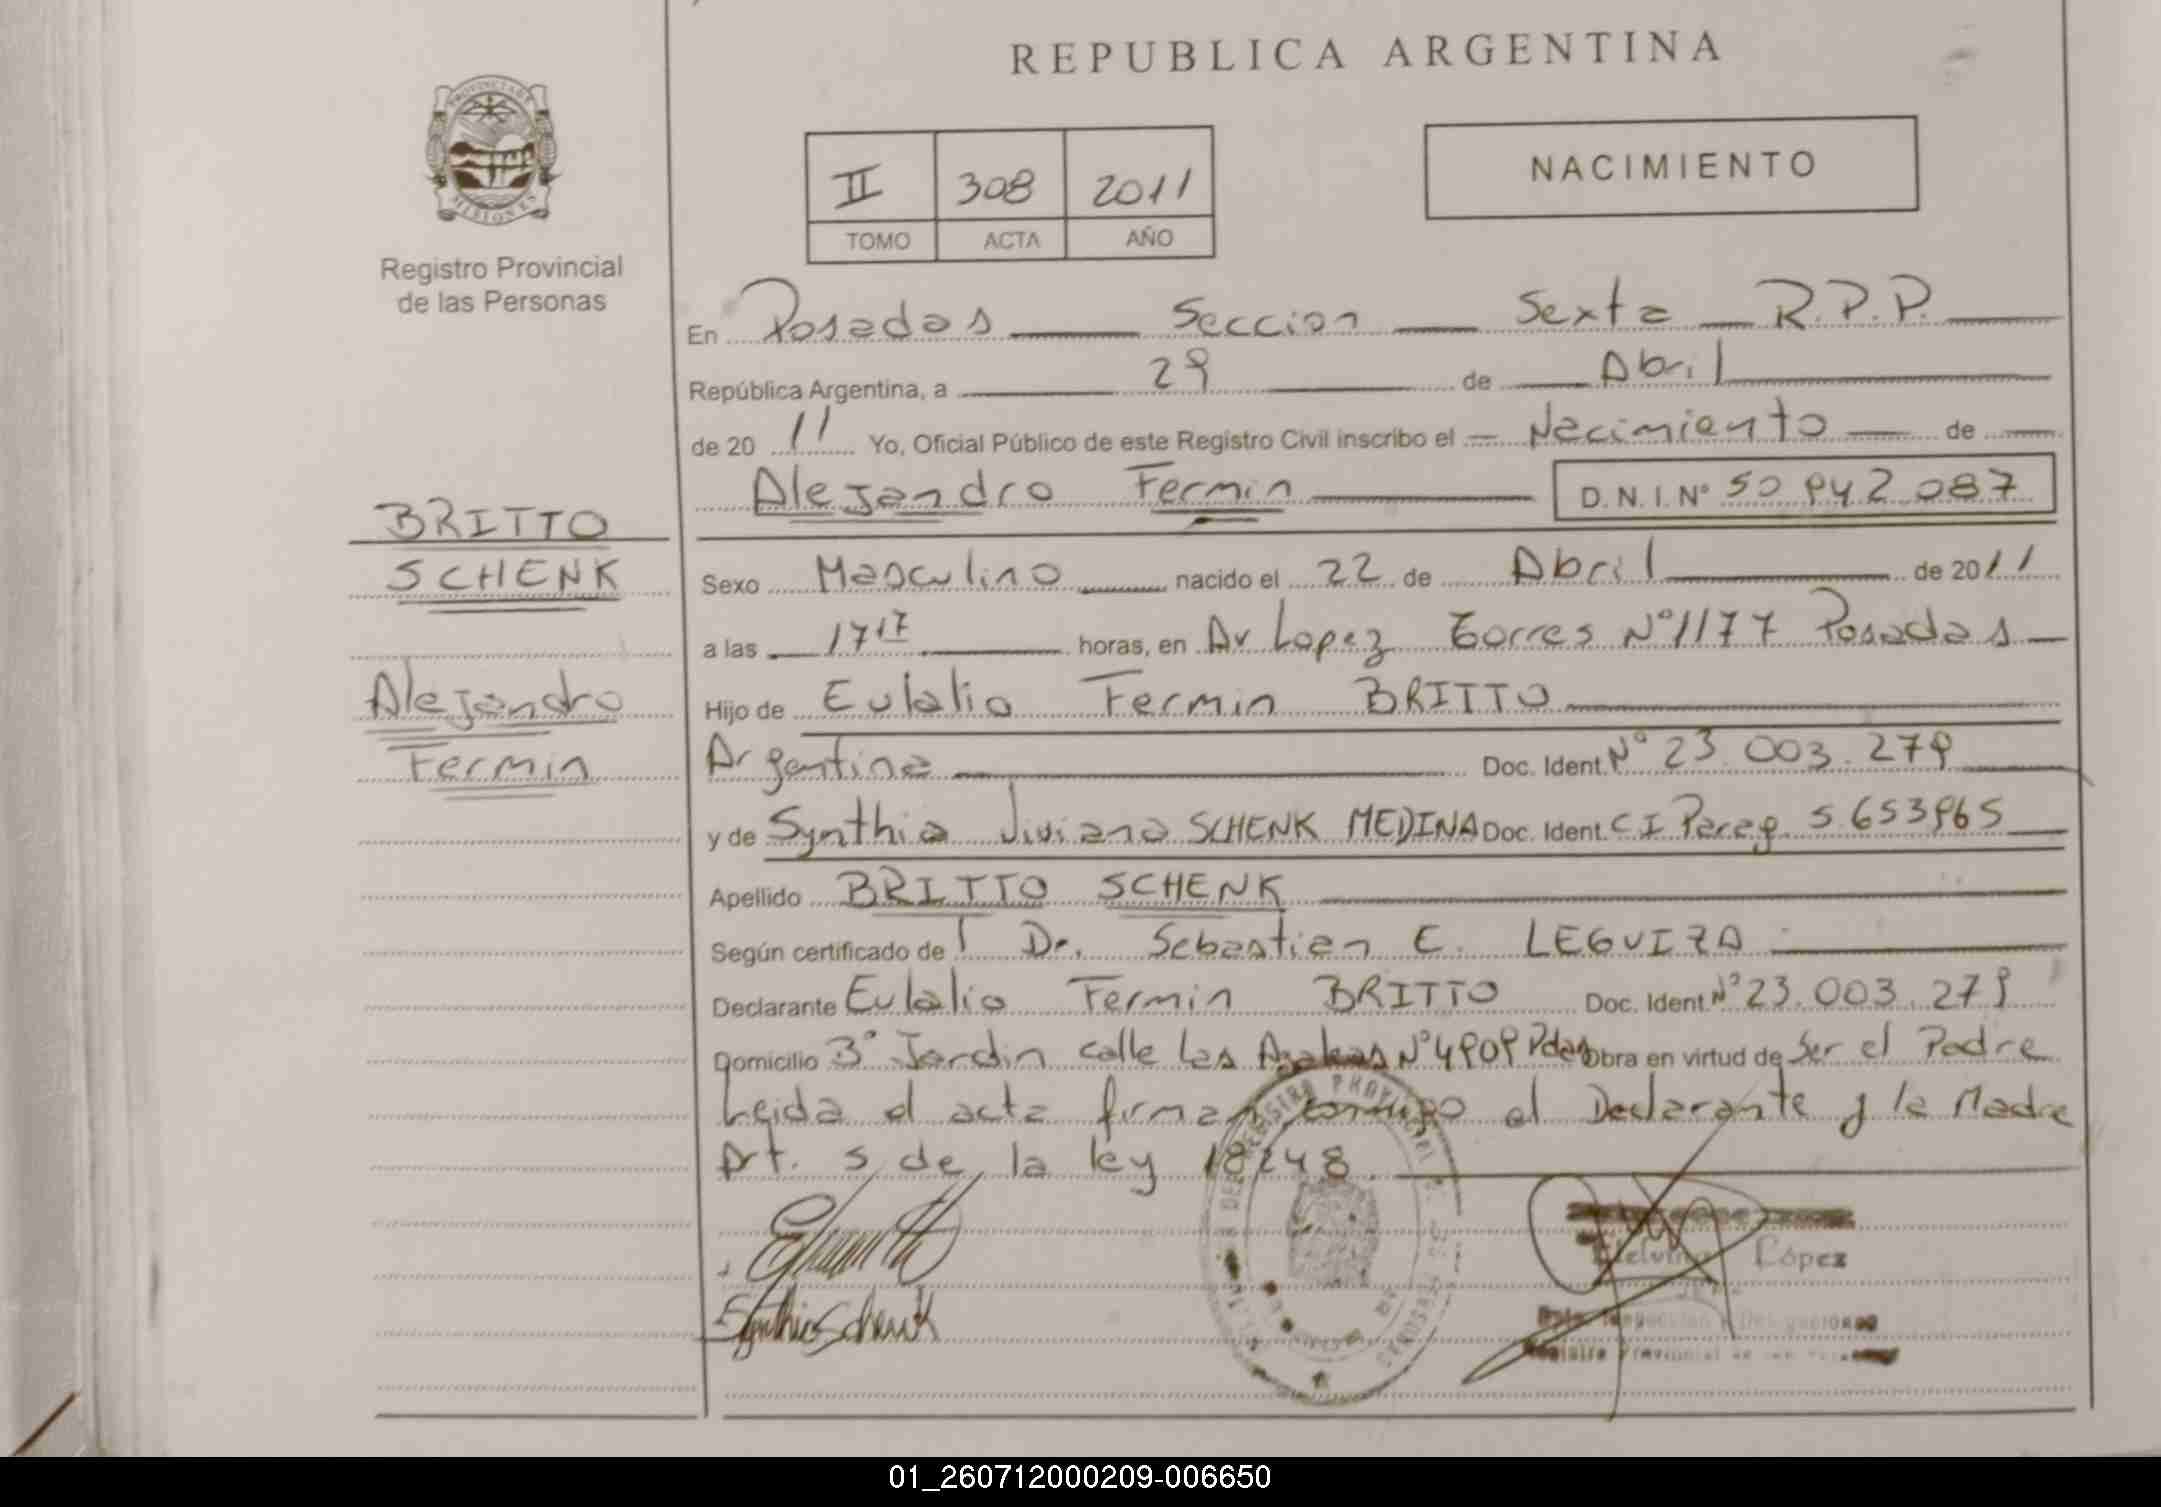 REPUBLICA ARGENTINA
PROVINCIA DE
MISIONES
Registro Provincial
de las Personas
II 308 2011
TOMO ACTA AÑO
NACIMIENTO
En Posadas Seccion Sexta R.P.P.
República Argentina, a 29 de Abril
de 20 11 Yo, Oficial Público de este Registro Civil inscribo el Nacimiento de
Alejandro Fermin D.N.I.Nº 50 942 087
BRITTO
SCHENK
Alejandro
Fermin
Sexo Masculino nacido el 22 de Abril de 2011
a las 17 17 horas, en Av Lopez Torres Nº 1177 Posadas
Hijo de Eulalio Fermin BRITTO
Argentina Doc. Ident. Nº 23.003.279
y de Synthia Viviana SCHENK MEDINA Doc. Ident. C I Parag. 5.653965
Apellido BRITTO SCHENK
Según certificado de l Dr. Sebastian E. LEGUIZA
Declarante Eulalio Fermin BRITTO Doc. Ident. Nº 23.003.279
Domicilio 3º Jardin calle Las Azaleas Nº 4909 Pdas Obra en virtud de Ser el Padre
Leida el acta firman conmigo el Declarante y la Madre
Art. 5 de la ley 18248.
Synthia Schenk
López
01_260712000209-006650